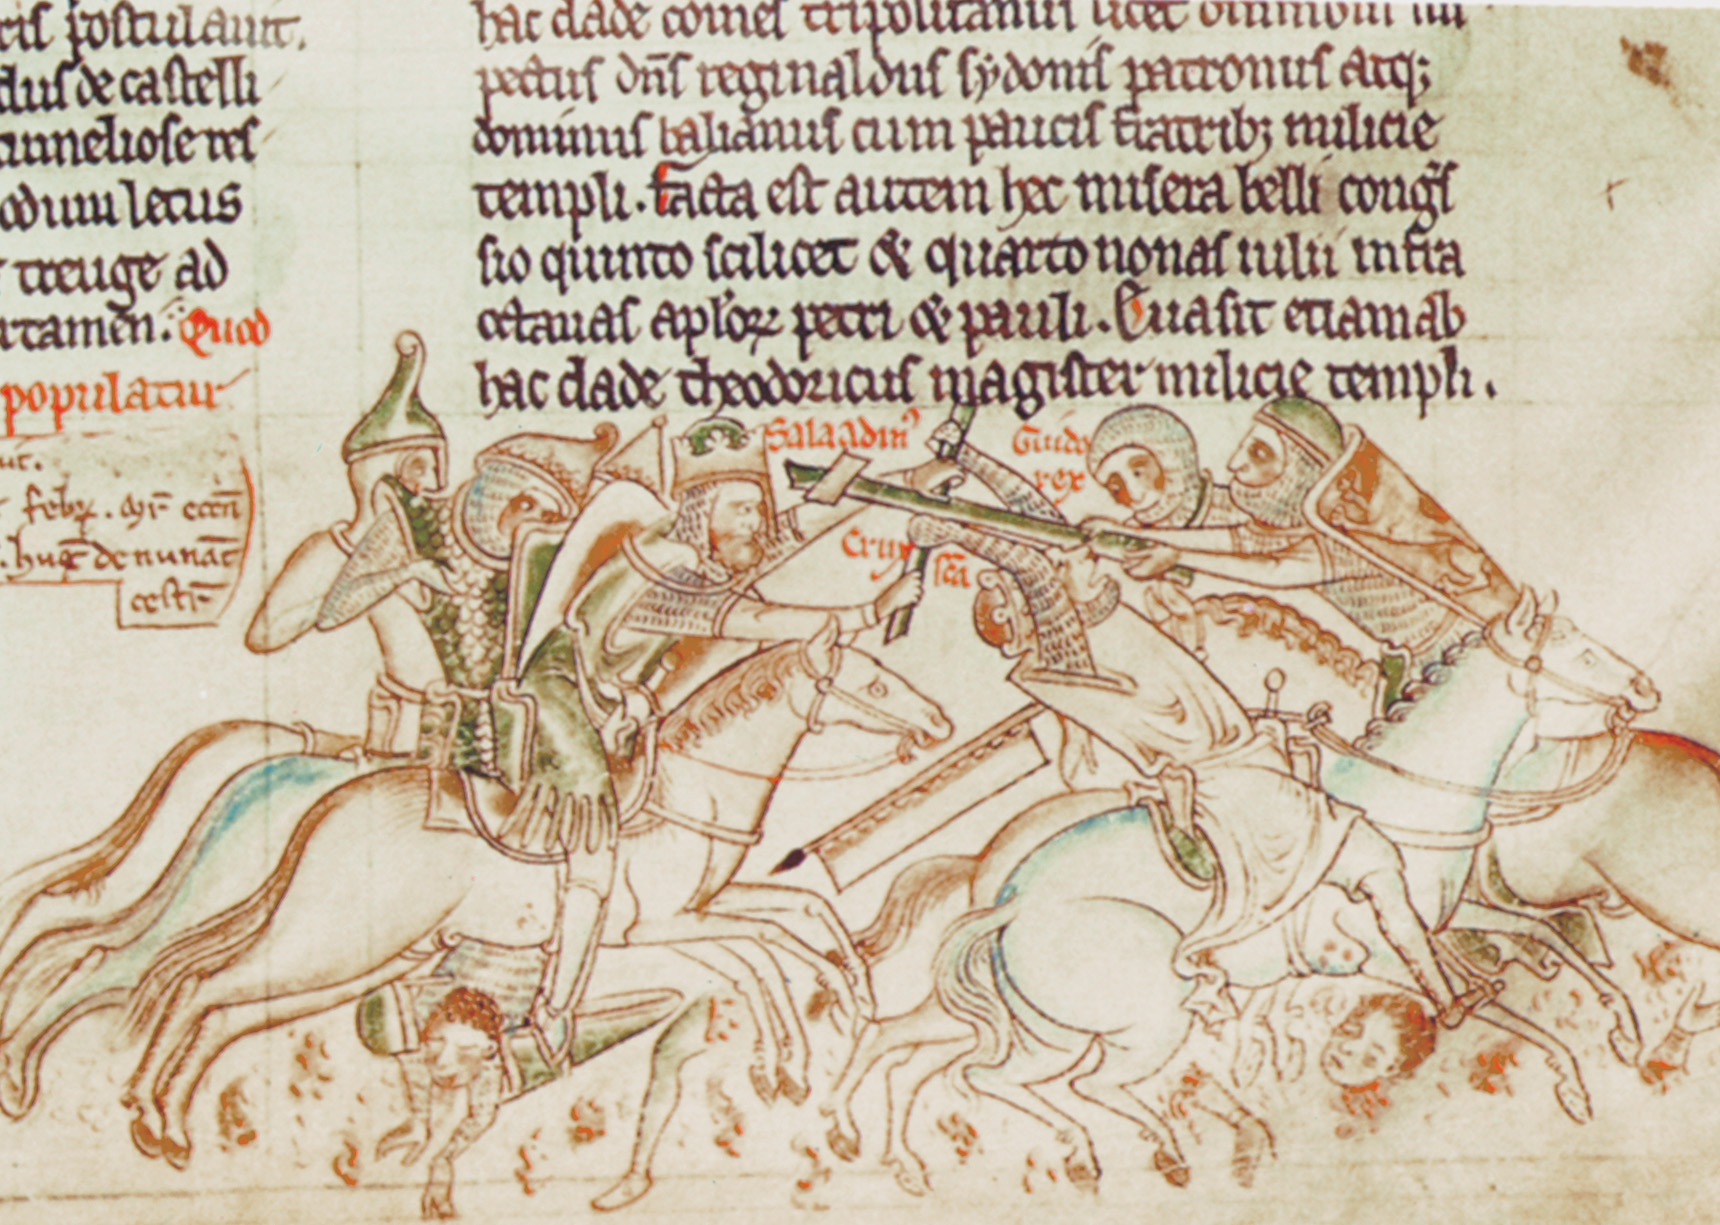 postulauit.
dus de castelli
tumeliose res
odum letus
treuge ad
tamen. Quod
populatur
febr.
. hug de nunat
cestr
hac clade comes tripolitanus licet omnibus
pectus dñs reginaldus sydonis patronus atq;
dominus balianus cum paucis fratrib; milicie
templi. Facta est autem hec misera belli cong̃s
sio quinto scilicet & quarto nonas iulii infra
octauas apl'oꝝ petri & pauli. Euasit etiam ab
hac clade theodoricus magister milicie templi.
Saladin'
Guido
rex
Crux sc̃a